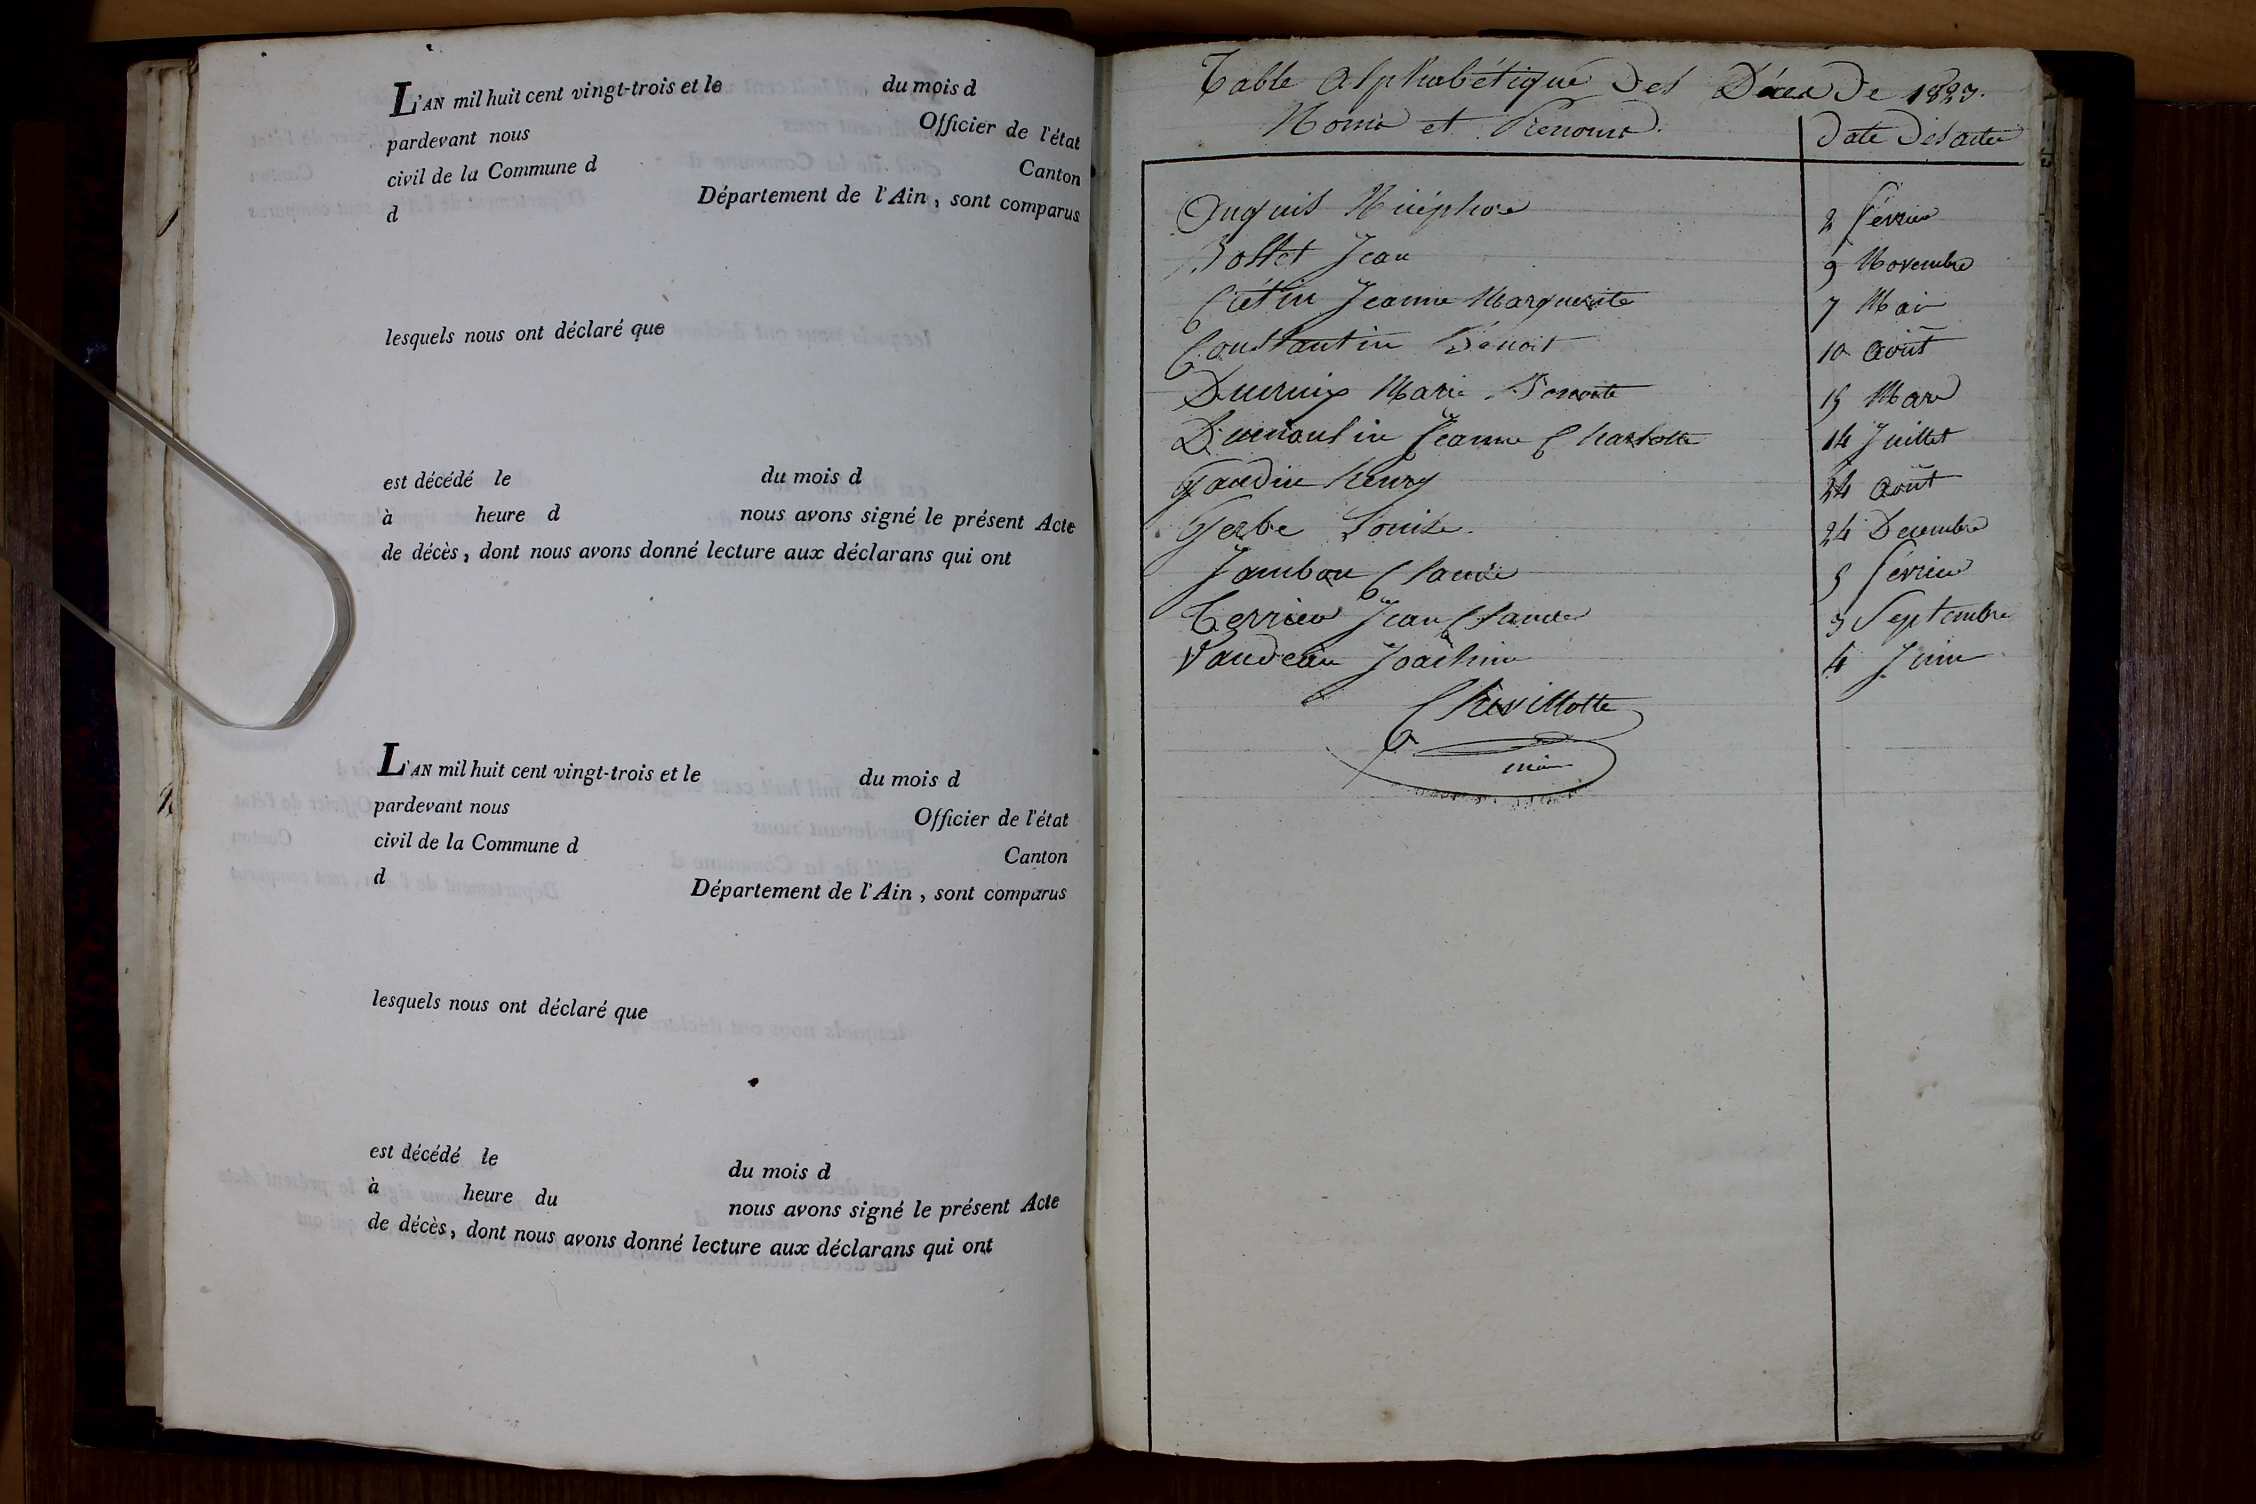 L'AN mil huit cent vingt-trois et le du mois d
pardevant nous Officier de l'état
civil de la Commune d Canton
d Département de l'Ain, sont comparus
lesquels nous ont déclaré que
est décédé le du mois d
à heure d nous avons signé le présent Acte
de décès, dont nous avons donné lecture aux déclarans qui ont
L'AN mil huit cent vingt-trois et le du mois d
pardevant nous Officier de l'état
civil de la Commune d Canton
d Département de l'Ain, sont comparus
lesquels nous ont déclaré que
est décédé le du mois d
à heure du nous avons signé le présent Acte
de décès, dont nous avons donné lecture aux déclarans qui ont
Table Alphabétique des Décès de 1823.
Noms et Prenoms. Date des actes
Nicéphore 2 février
Jean 9 Novembre
Jeanne Marguerite 7 Mai
Constantin Benoit 10 Août
Marie 15 Mars
Dumoulin Jeanne Charlotte 14 Juillet
Gaudin henry 24 Août
Gerbe Louise. 24 Decembre
Jambon Claude 5 février
Terrier Jean Claude 3 Septembre
Joachim 4 Juin
Chevillotte